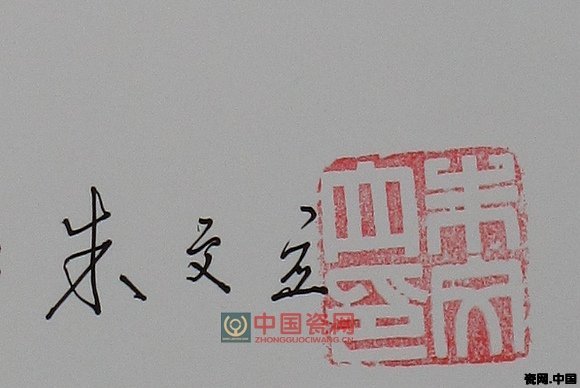 朱文立
朱文立印
中国瓷网
ZHONGGUOCIWANG.CN
瓷网.中国